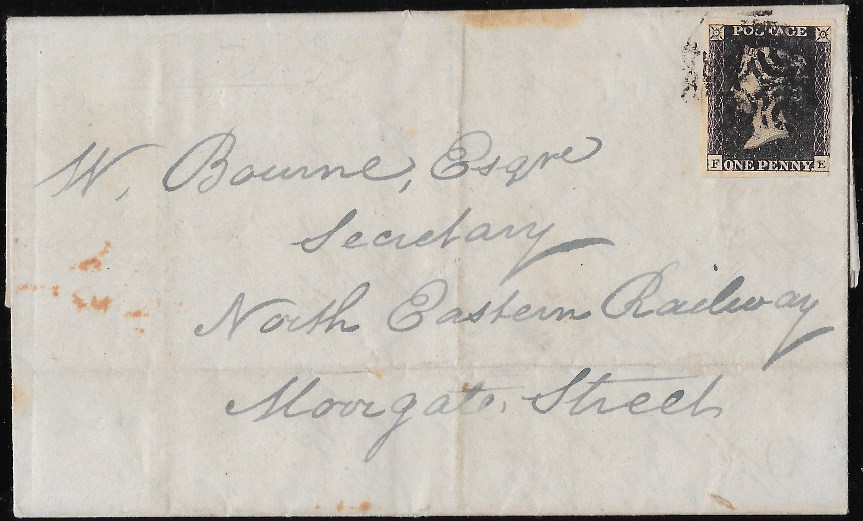 POSTAGE
F ONE PENNY E
W. Bourne, Esqre
Secretary
North Eastern Railway
Moorgate. Street